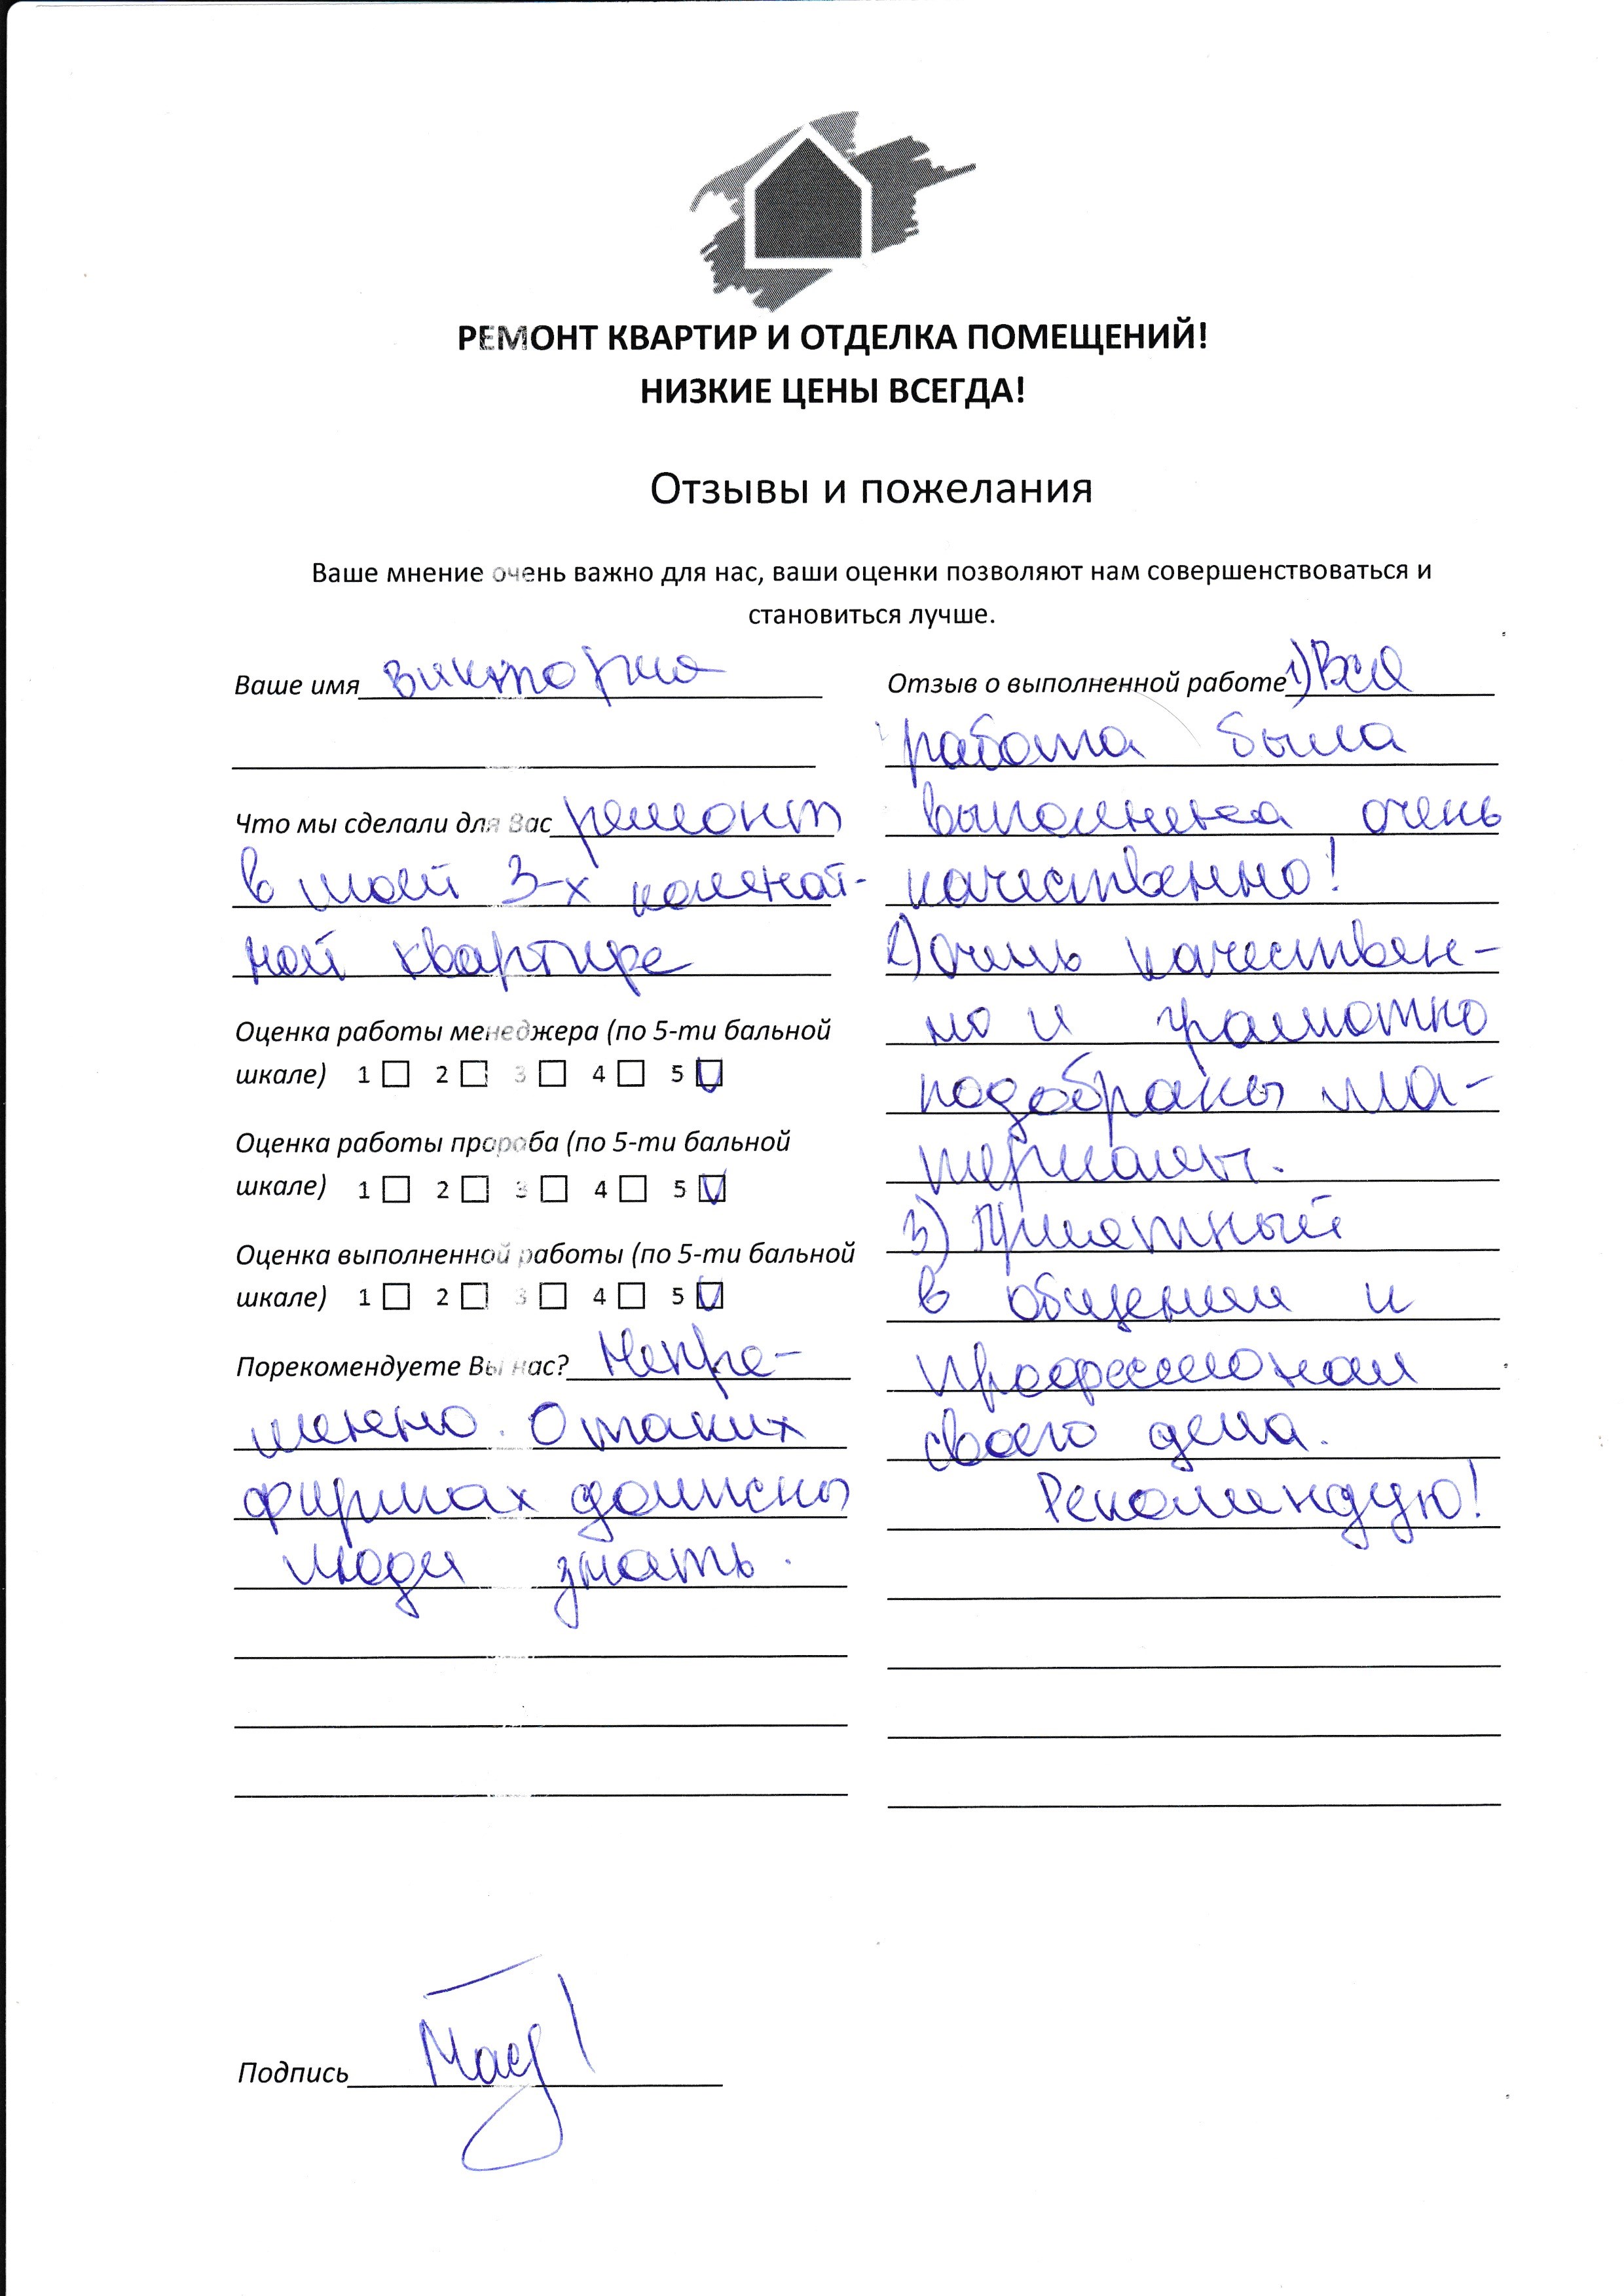 РЕМОНТ КВАРТИР И ОТДЕЛКА ПОМЕЩЕНИЙ!
НИЗКИЕ ЦЕНЫ ВСЕГДА!
Отзывы и пожелания
Ваше мнение очень важно для нас, ваши оценки позволяют нам совершенствоваться и
становиться лучше.
Ваше имя Виктория
Что мы сделали для Вас ремонт
в моей 3-х комнат-
ной квартире
Оценка работы менеджера (по 5-ти бальной
шкале) 1 2 3 4 5
Оценка работы прораба (по 5-ти бальной
шкале) 1 2 3 4 5
Оценка выполненной работы (по 5-ти бальной
шкале) 1 2 3 4 5
Порекомендуете Вы нас? Непре-
менно. О таких
фирмах должны
люди знать.
Отзыв о выполненной работе 1) Вся
работа была
выполнена очень
качественно!
2) Очень качествен-
но и грамотно
подобраны ма-
териалы.
3) Приятный
в общении и
профессионал
своего дела.
Рекомендую!
Подпись